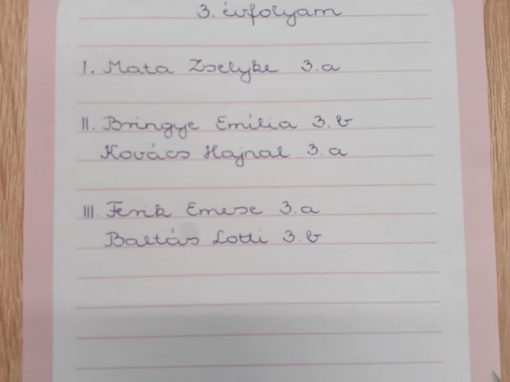 3. évfolyam
I. Mata Zselyke 3.a
II. Bringye Emília 3.b
Kovács Hajnal 3.a
III. Fenk Emese 3.a
Baltás Lotti 3.b